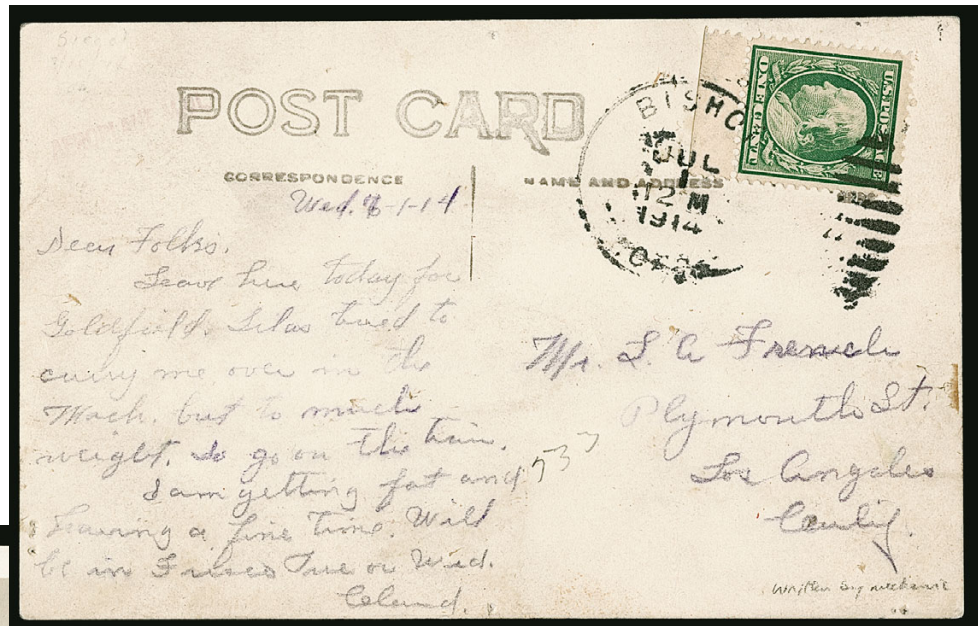 POST CARD
CORRESPONDENCE
NAME AND ADDRESS
BISHO
JUL
1
12 M
1914
U.S. POSTAGE
ONE CENT
Wed. 7-1-14
Dear Folks.
Leave here today for
Goldfield. Silas tried to
carry me over in the
Mach. but to much
weight. So go on the train.
I am getting fat and
having a fine time. Will
be in Frisco Tue or Wed.
Leland.
Mr. L. A French
533
Plymouth St.
Los Angeles
Calif.
written by mechanic